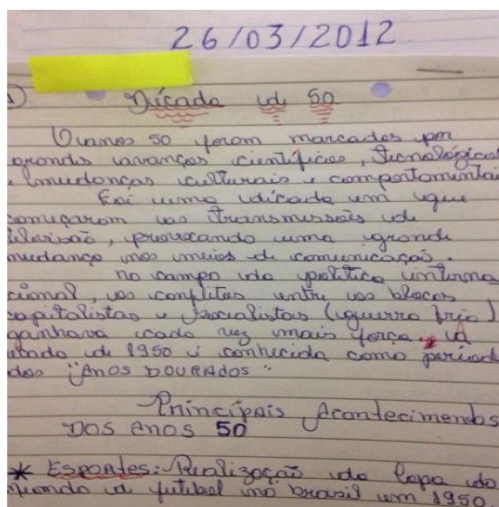 26/03/2012
Década de 50
Os anos 50 foram marcados por
grandes avanços científicos, tecnológicos
e mudanças culturais e comportamentais
Foi uma década em que
começaram as transmissões de
televisão, provocando uma grande
mudança nos meios de comunicação.
no campo da política interna
cional, os conflitos entre os blocos
capitalistas e socialistas (guerra fria)
ganhava cada vez mais força. a
de 1950 é conhecida como period
dos "ANOS DOURADOS"
Principais Acontecimentos
DOS ANOS 50
* ESPORTES: Realização da Copa do
mundo de futebol no brasil em 1950